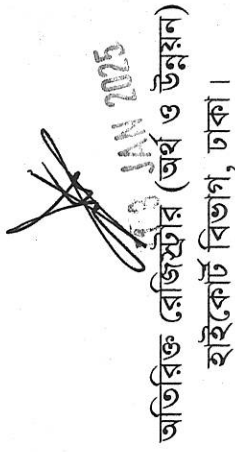 JAN 2025
অতিরিক্ত রেজিস্ট্রার (অর্থ ও উন্নয়ন)
হাইকোর্ট বিভাগ, ঢাকা।